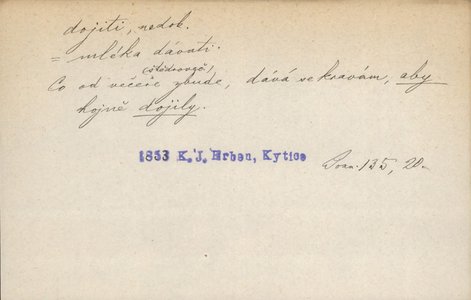 dojiti, nedok.
= mléka dávati.
(štědrovečž.)
Co od večeře zbude, dává se kravám, aby
hojně dojily.
1853 K. J. Erben, Kytice
135, 20